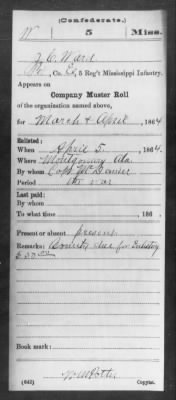 (Confederate.)
W 5 Miss.
Z. C. Ward
Pvt, Co. E, 5 Reg't Mississippi Infantry.
Appears on
Company Muster Roll
of the organization named above,
for March & April, 1864
Enlisted:
When April 5, 1864.
Where Montgomery Ala.
By whom Capt
Period the war
Last paid:
By whom
To what time , 186 .
Present or absent present
Remarks: Bounty due for Enlistg
$50.00
Book mark:
(642) Copyist.